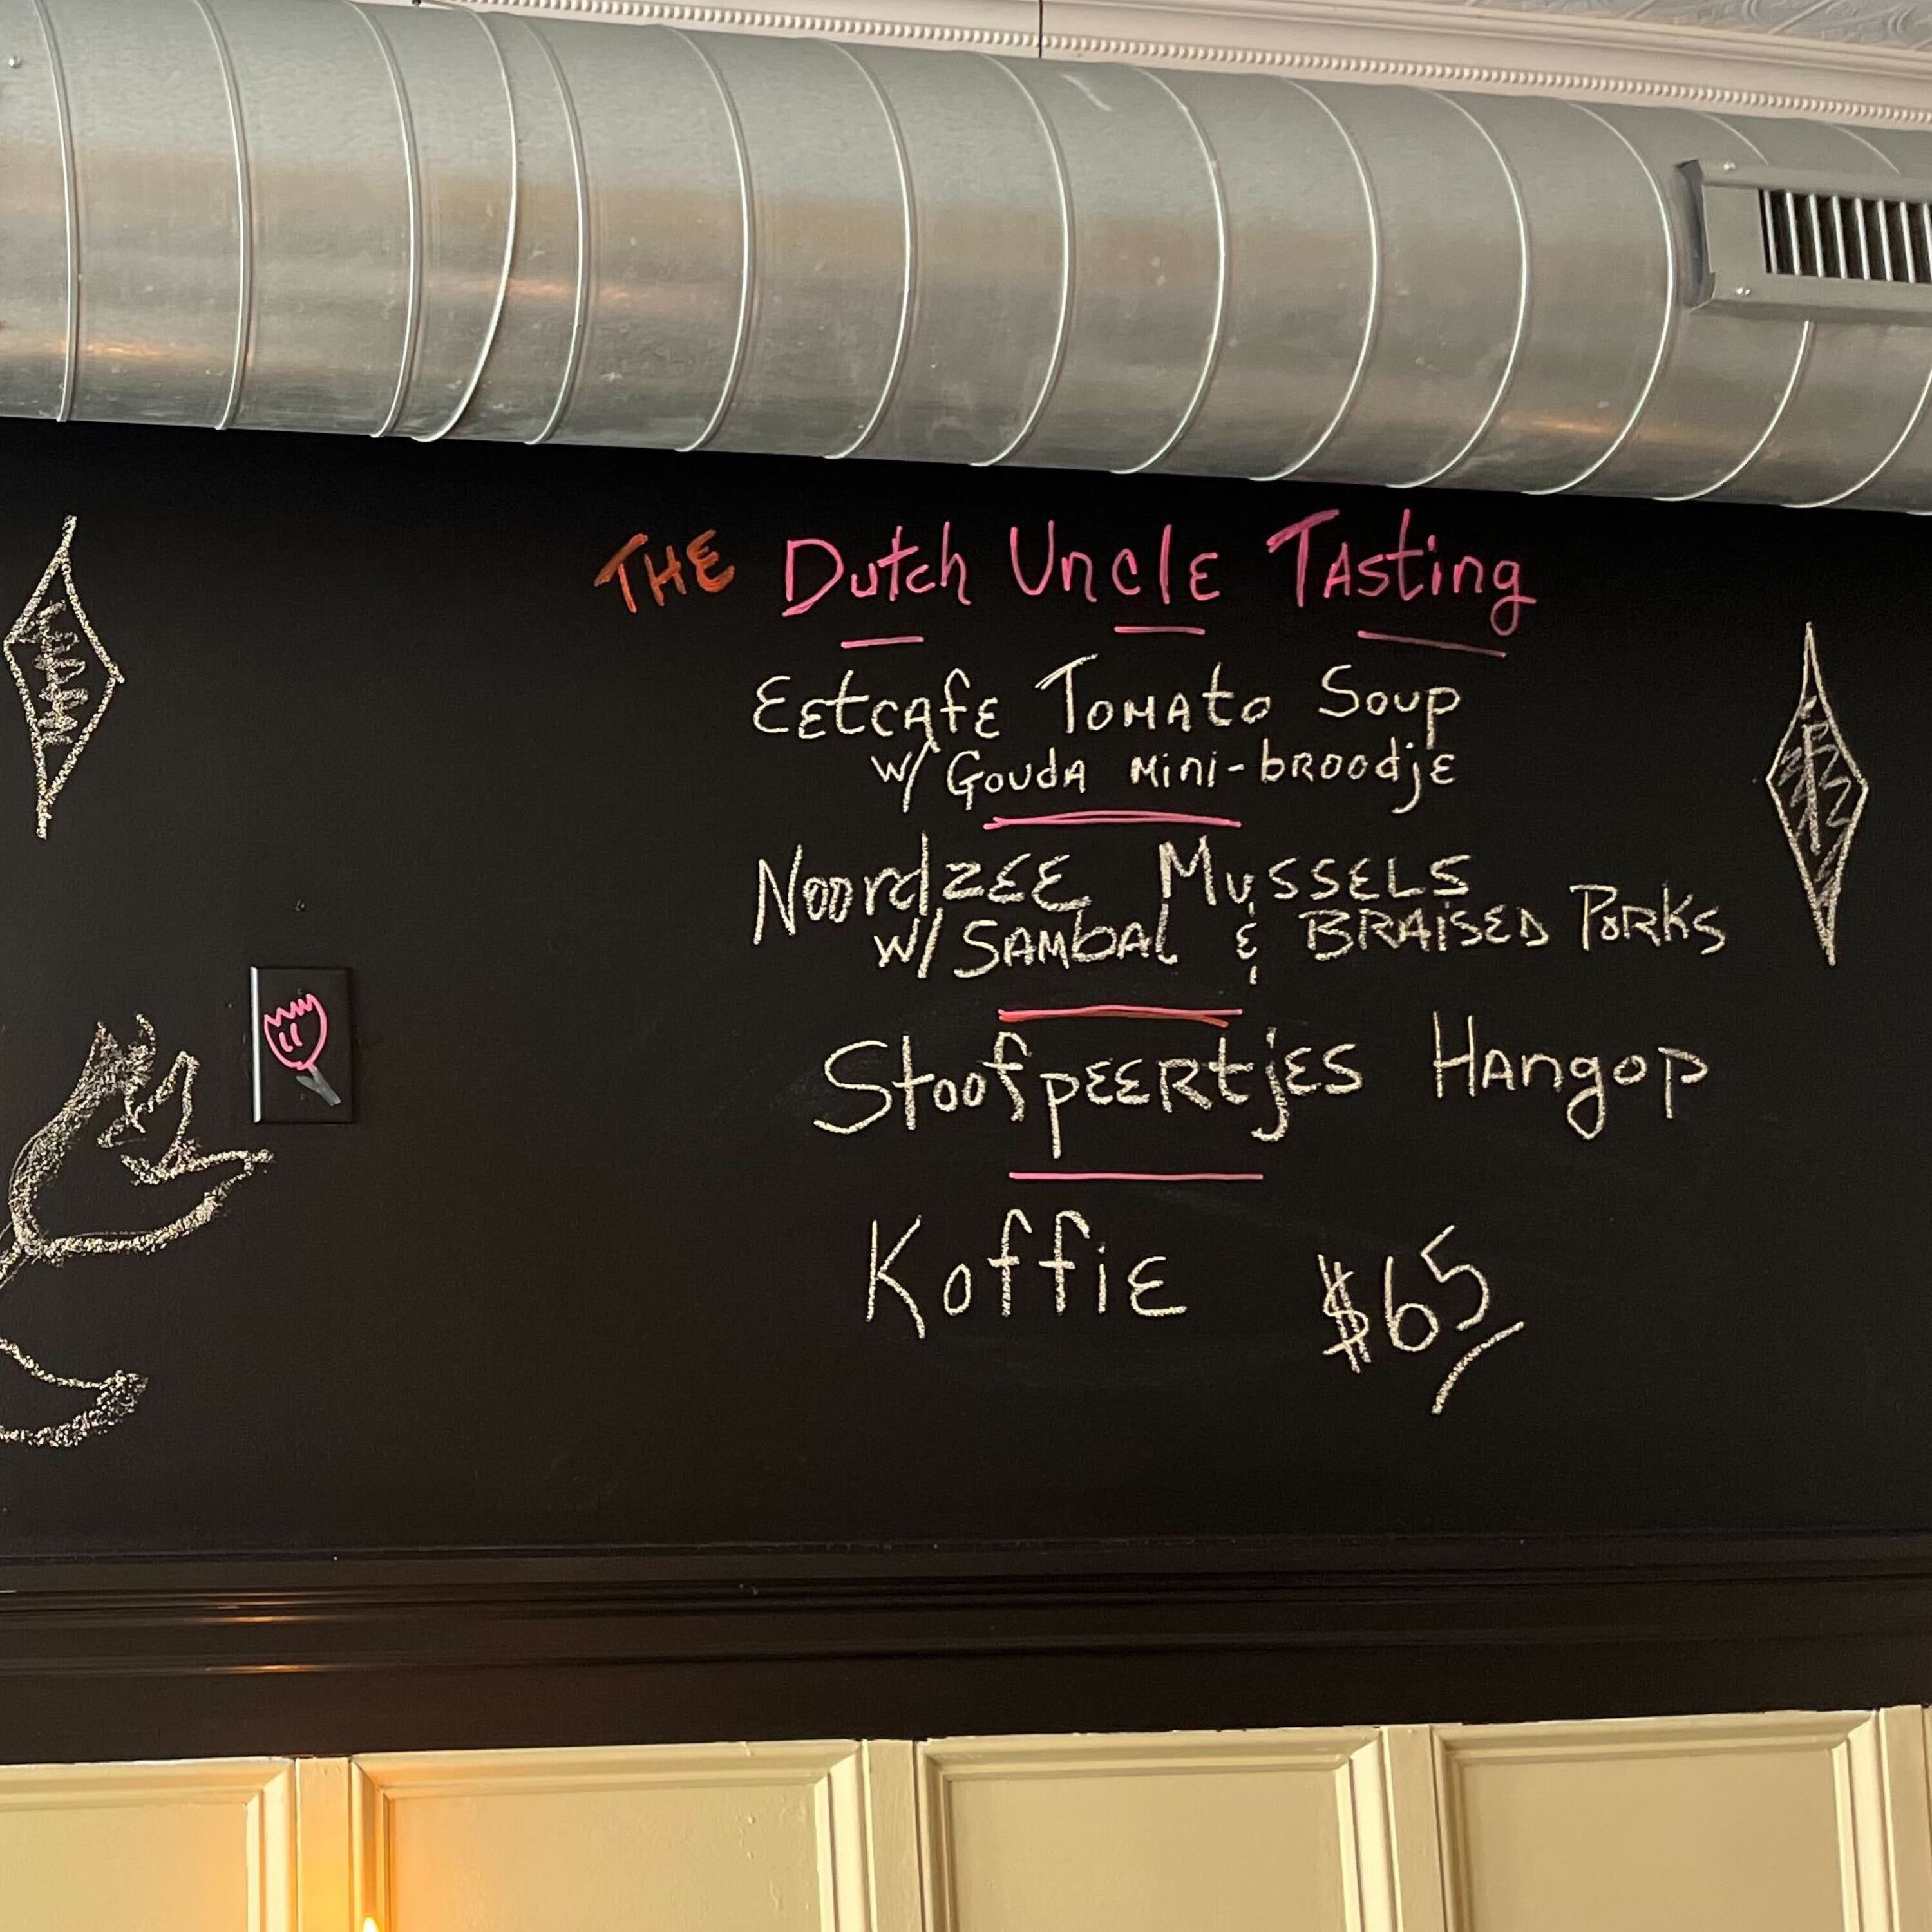 THE Dutch Uncle Tasting
Eetcafe Tomato Soup
w/ Gouda mini-broodje
Noordzee Mussels
w/ Sambal & Braised Porks
Stoofpeertjes Hangop
Koffie $65